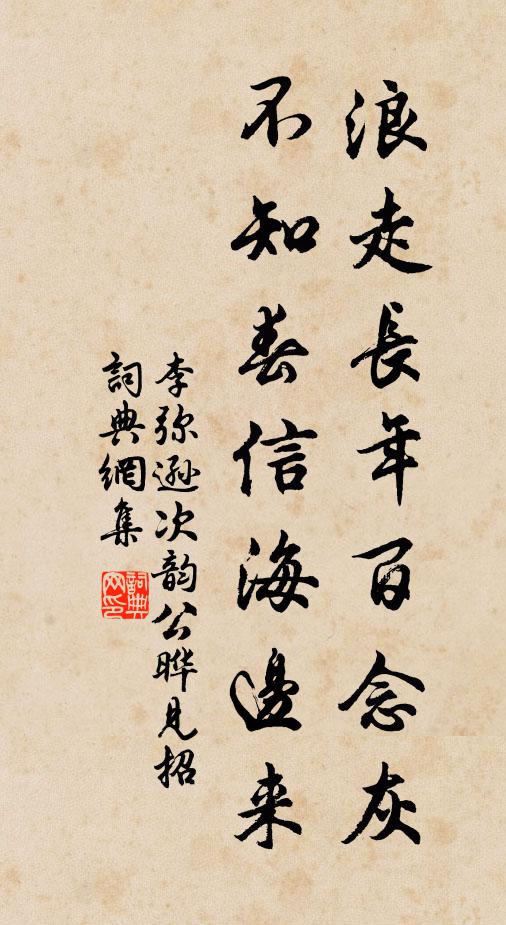 浪走長年百念灰
不知春信海邊来
李弥遜次韵公晔見招
詞典網集
詞典网印